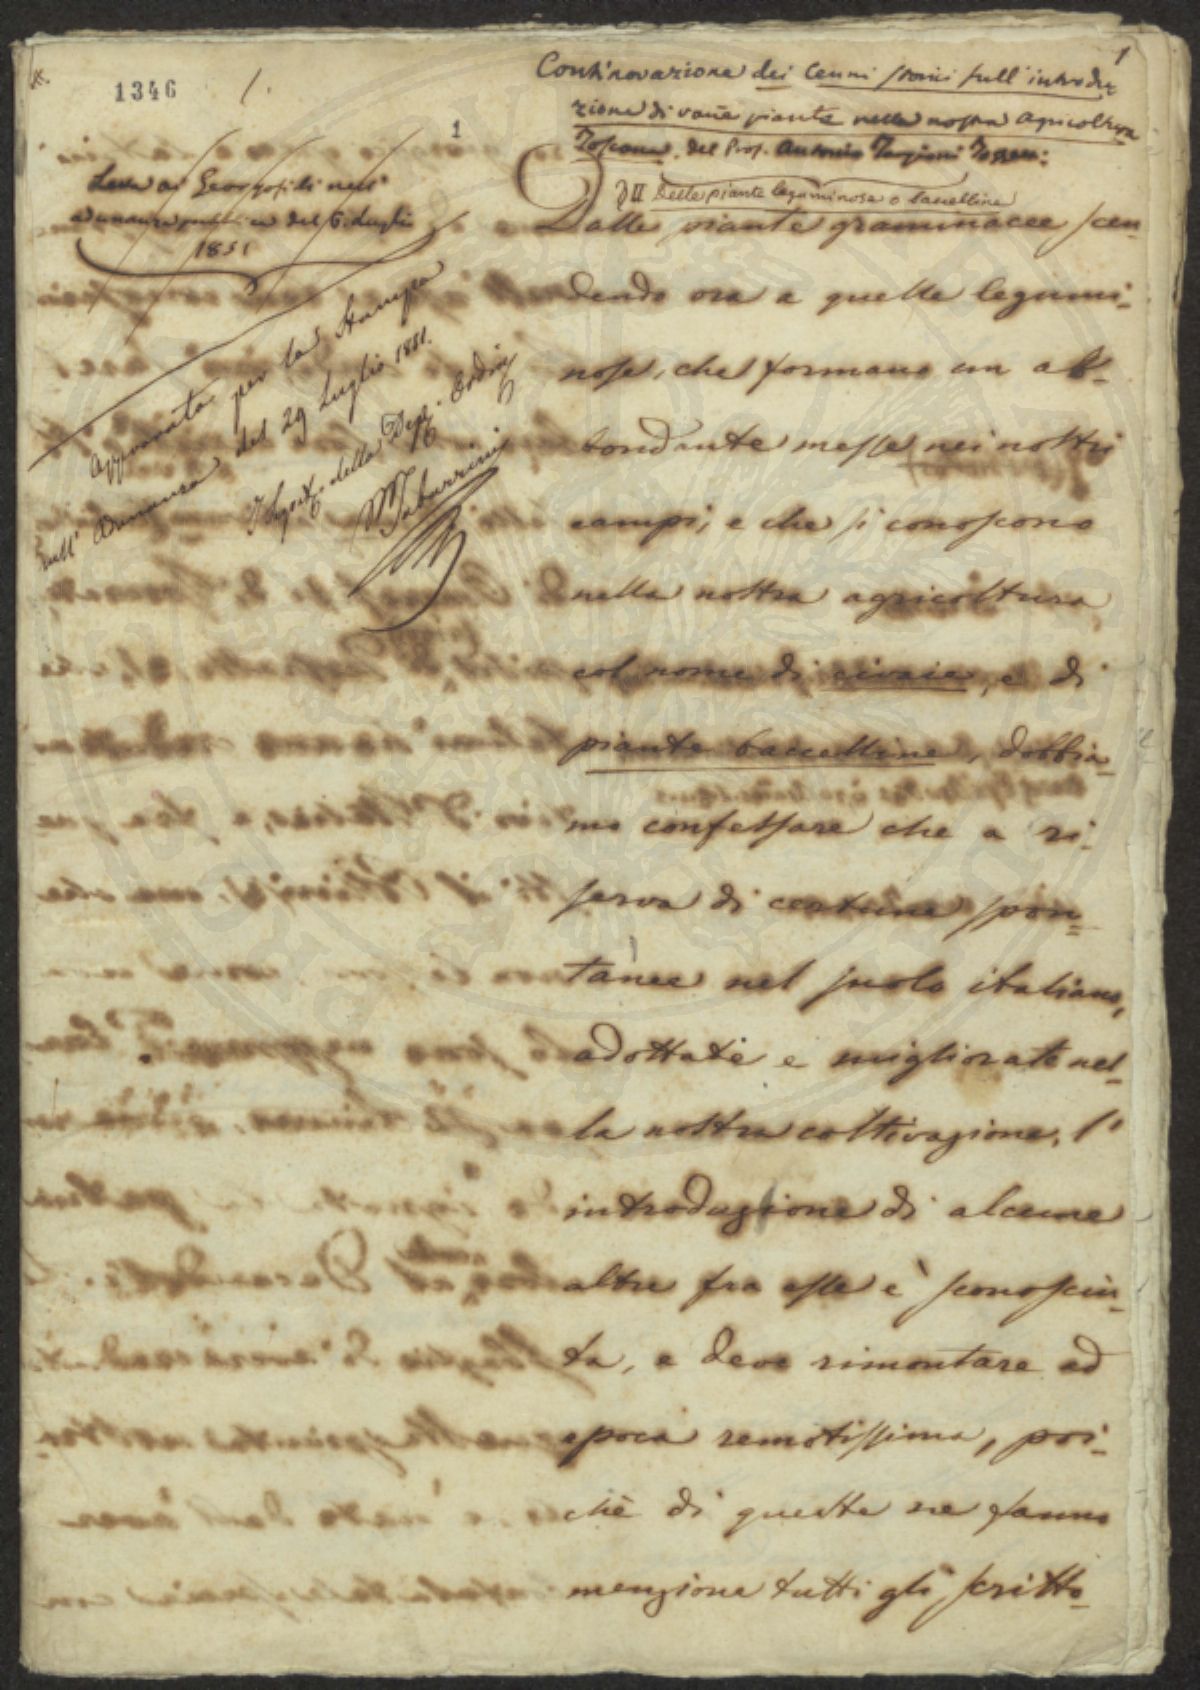 1346
1.
1
1
Continovazione dei Cenni storici sull' introdu
zione di varie piante nella nostra Agricoltura
Toscana. del Prof. Antonio Targioni Tozzetti
§ II Delle piante leguminose o baccelline
Letta ai Georgofili nell'
adunanza del 6. Luglio
1851
Approvata per la Stampa
nell' Adunanza del 29 Luglio 1851.
Il Segret. della Dep. Ordin.
M Tabarrini
Dalle piante graminacee scen-
dendo ora a quelle legumi-
nose, che formano un ab-
bondante messe nei nostri
campi, e che si conoscono
nella nostra agricoltura
col nome di civaie, e di
piante baccelline, dobbia-
mo confessare che a ri-
serva di certune spon-
tanee nel suolo italiano,
adottate e migliorate nel-
la nostra coltivazione, l'
introduzione di alcune
altre fra esse è sconosciu-
ta, e deve rimontare ad
epoca remotissima, poi-
chè di queste ne fanno
menzione tutti gli scritto-